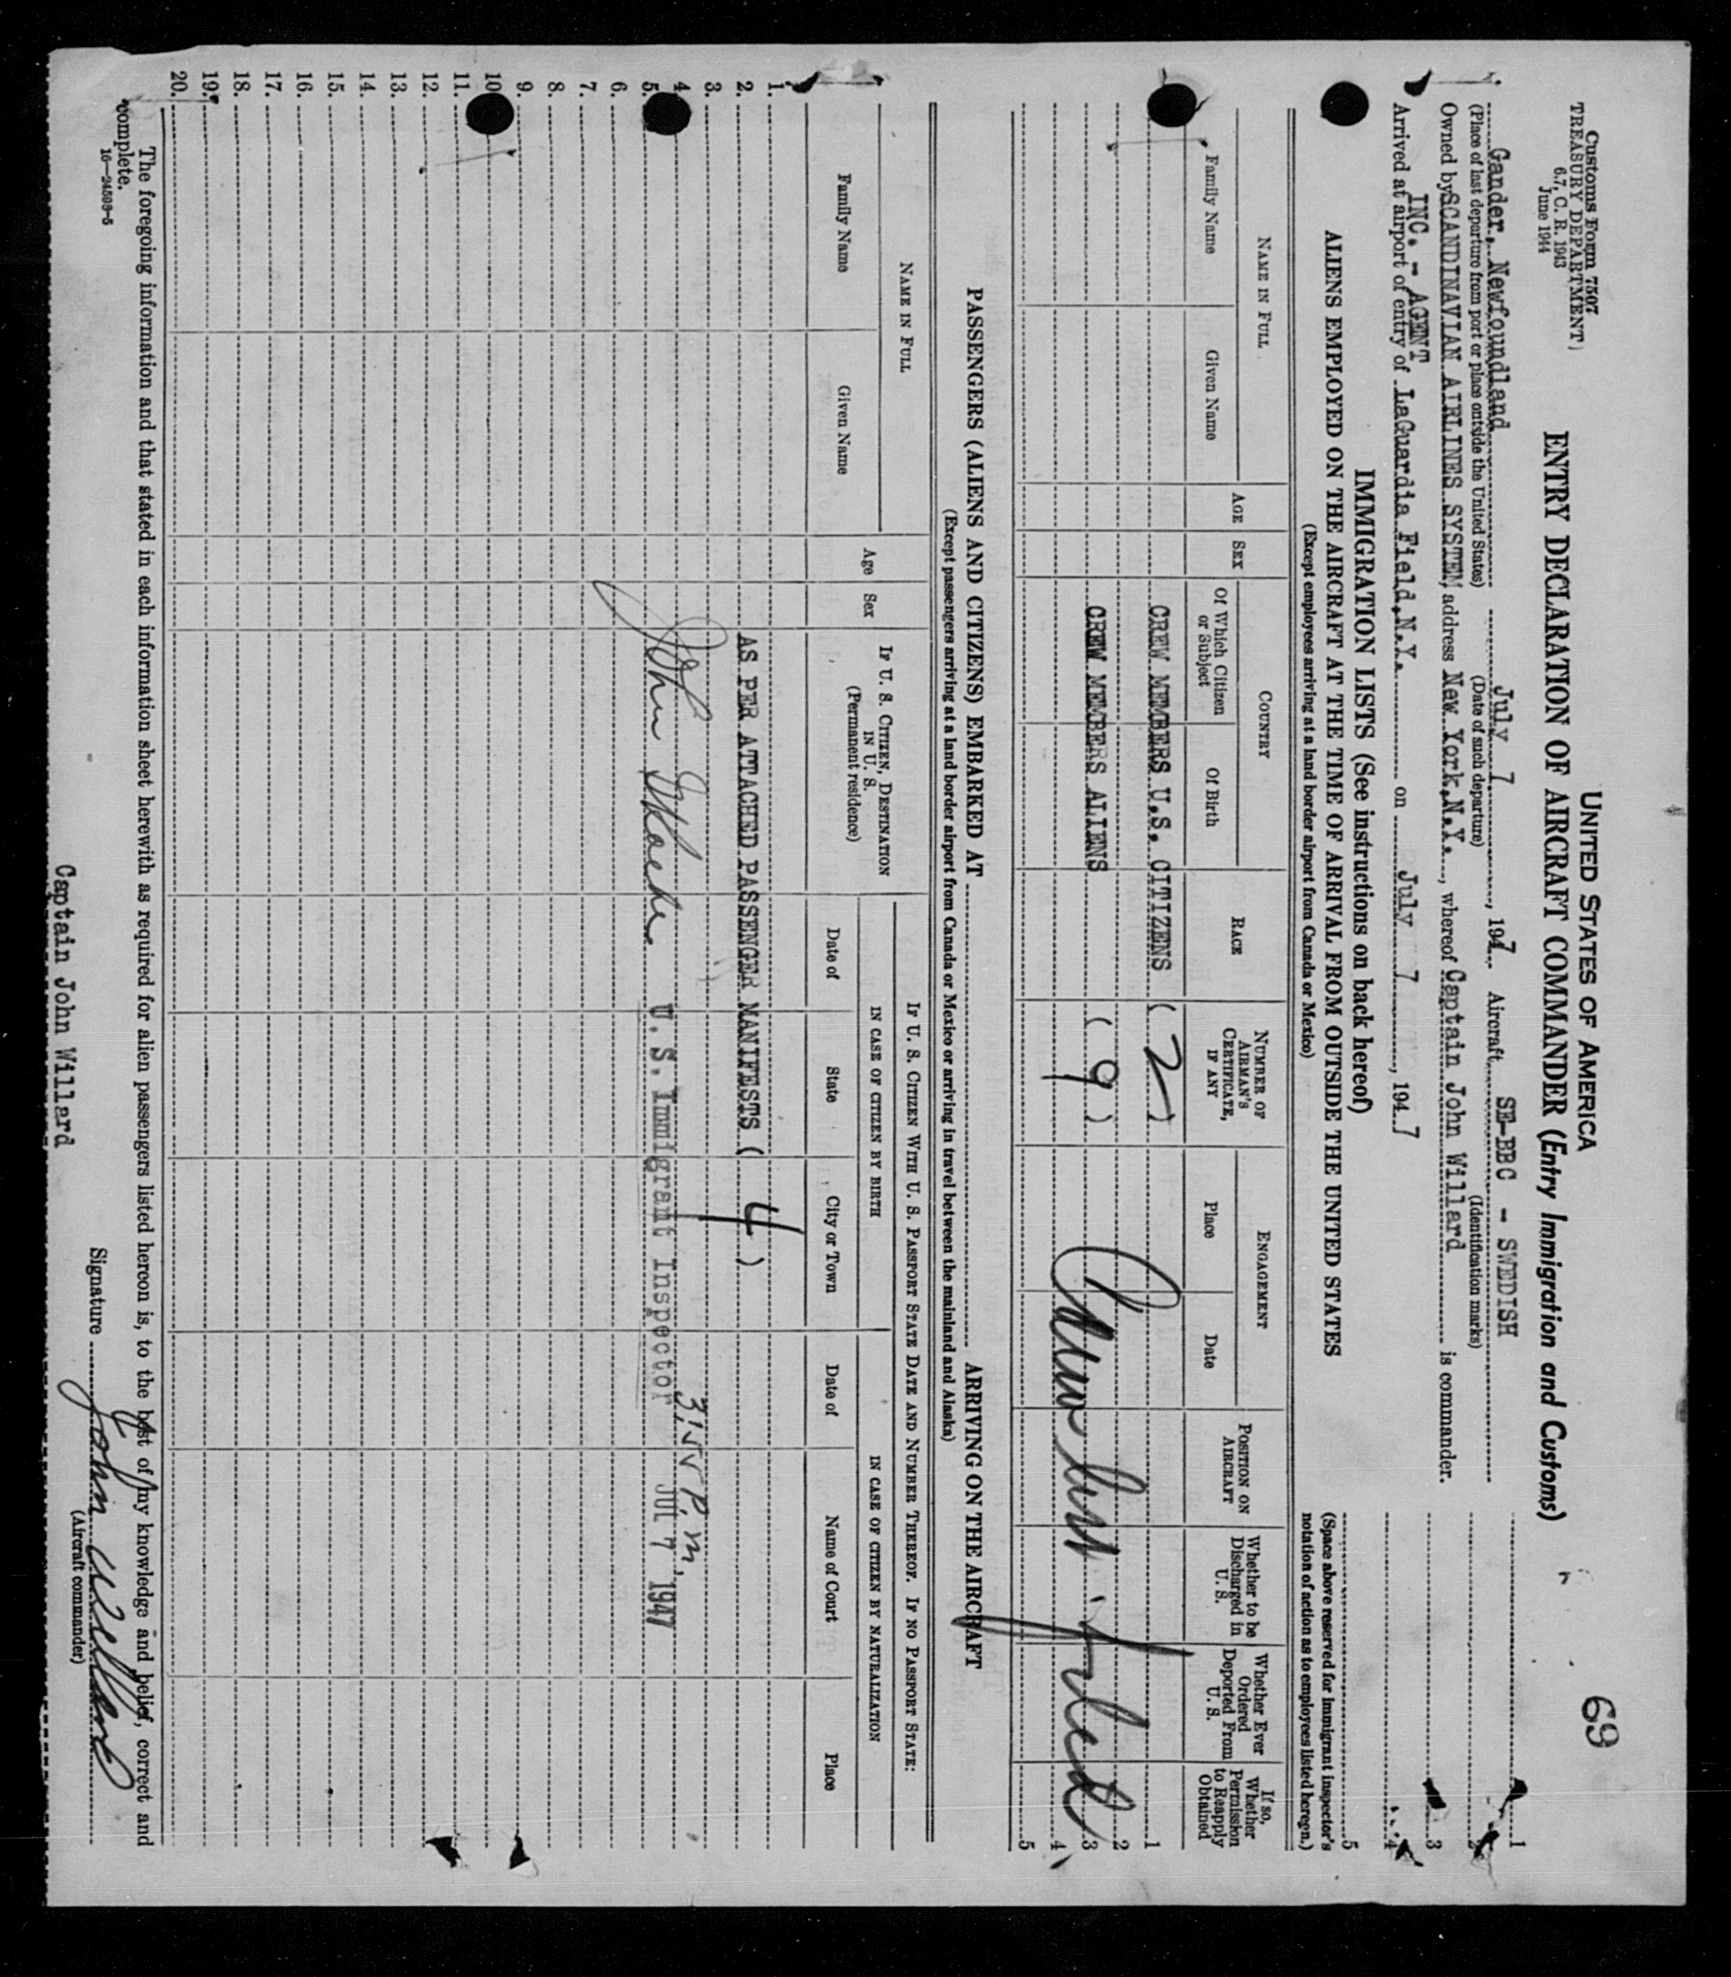 69
Customs Form 7507
TREASURY DEPARTMENT
6.7, C. R. 1943
June 1944
UNITED STATES OF AMERICA
ENTRY DECLARATION OF AIRCRAFT COMMANDER (Entry Immigration and Customs)
Gander, Newfoundland July 7, 1947. Aircraft SE-BBC - SWEDISH
(Place of last departure from port or place outside the United States) (Date of such departure) (Identification marks)
Owned by SCANDINAVIAN AIRLINES SYSTEM, address New York, N.Y., whereof Captain John Willard is commander.
INC. - AGENT
Arrived at airport of entry of LaGuardia Field, N.Y. on July 7, 1947
1
2
3
4
5
(Space above reserved for immigrant inspector's notation of action as to employees listed hereon.)
IMMIGRATION LISTS (See instructions on back hereof)
ALIENS EMPLOYED ON THE AIRCRAFT AT THE TIME OF ARRIVAL FROM OUTSIDE THE UNITED STATES
(Except employees arriving at a land border airport from Canada or Mexico)
NAME IN FULL AGE SEX COUNTRY RACE NUMBER OF AIRMAN'S CERTIFICATE, IF ANY ENGAGEMENT POSITION ON AIRCRAFT Whether to be Discharged in U. S. Whether Ever Ordered Deported From U. S. If so, Whether Permission to Reapply Obtained
Family Name Given Name Of Which Citizen or Subject Of Birth Place Date
CREW MEMBERS U.S. CITIZENS ( 2 ) 1
2
CREW MEMBERS ALIENS ( 9 ) 3
Crew list filed
4
5
PASSENGERS (ALIENS AND CITIZENS) EMBARKED AT ARRIVING ON THE AIRCRAFT
(Except passengers arriving at a land border airport from Canada or Mexico or arriving in travel between the mainland and Alaska)
NAME IN FULL Age Sex IF U. S. CITIZEN, DESTINATION IN U. S. (Permanent residence) IF U. S. CITIZEN WITH U. S. PASSPORT STATE DATE AND NUMBER THEREOF. IF NO PASSPORT STATE:
IN CASE OF CITIZEN BY BIRTH IN CASE OF CITIZEN BY NATURALIZATION
Family Name Given Name Date of State City or Town Date of Name of Court Place
1.
2. AS PER ATTACHED PASSENGER MANIFESTS ( 4 )
3.
4. 3:55 P.M.
5. John U. S. Immigrant Inspector JUL 7 1947
6.
7.
8.
9.
10.
11.
12.
13.
14.
15.
16.
17.
18.
19.
20.
The foregoing information and that stated in each information sheet herewith as required for alien passengers listed hereon is, to the best of my knowledge and belief, correct and
complete.
16—24508-5
Signature John Willard
(Aircraft commander)
Captain John Willard